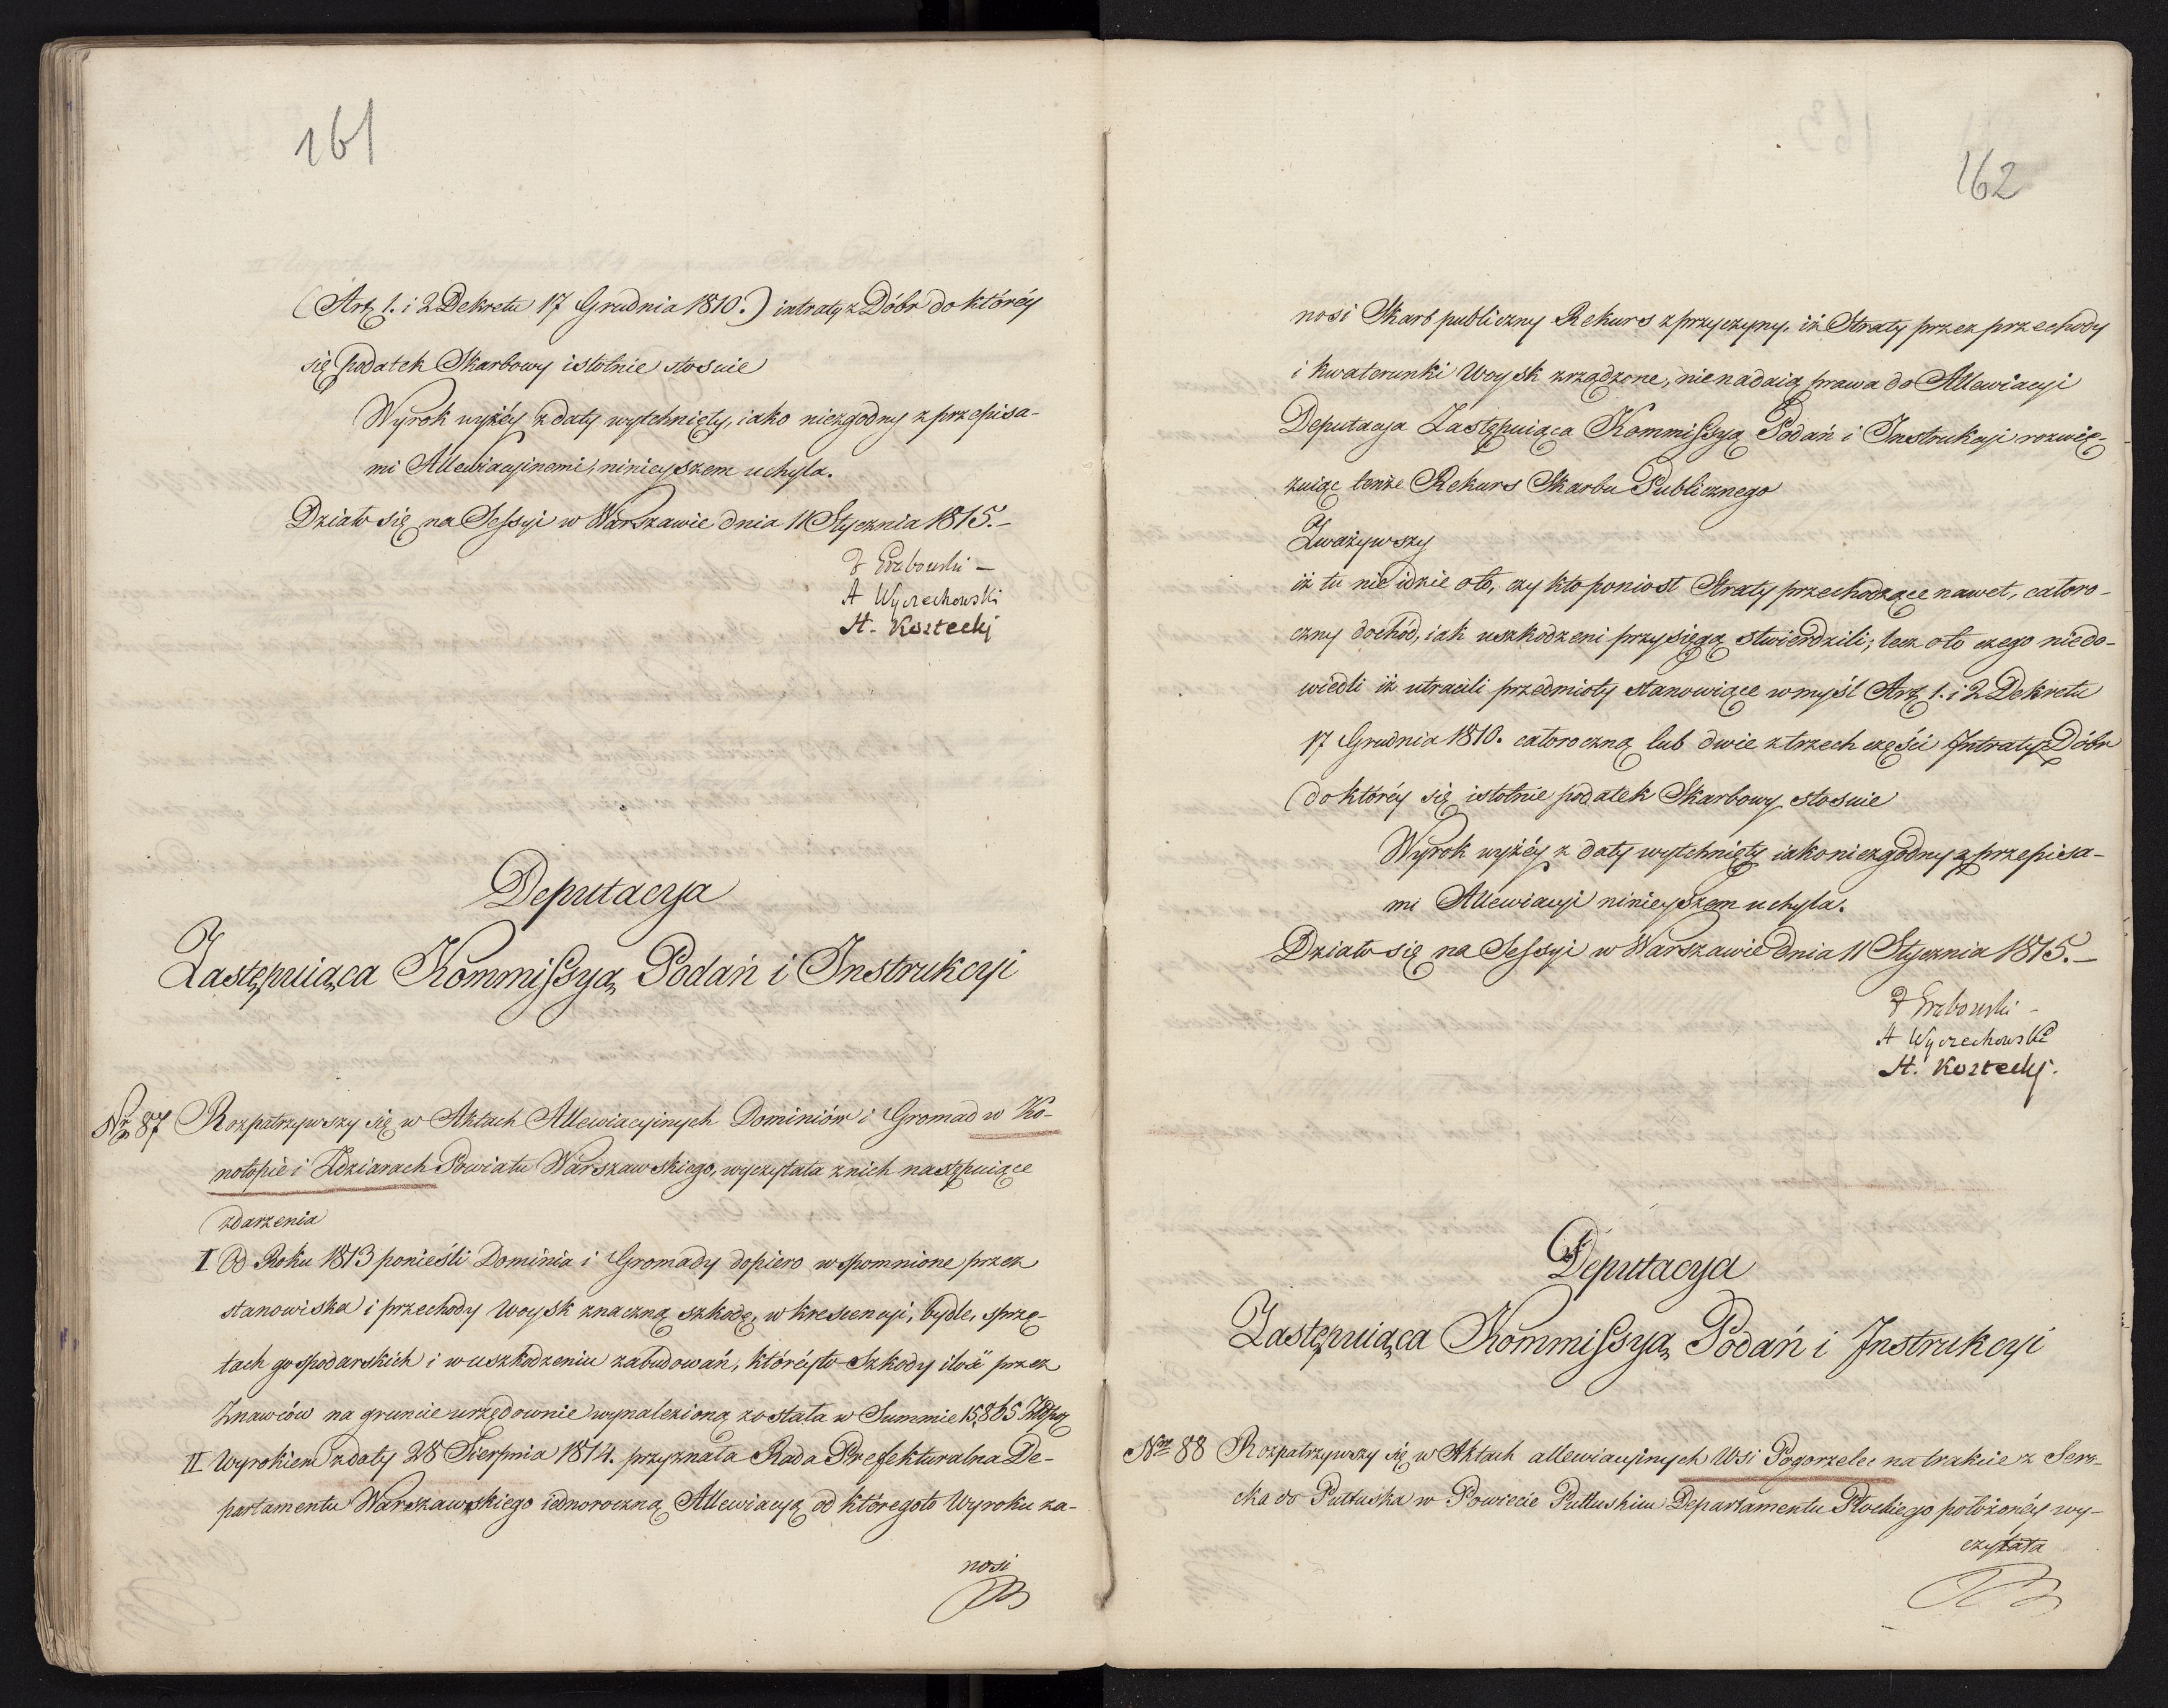 161
(Art. 1. i 2 Dekretu 17 Grudnia 1810.) intraty z Dóbr do któréy
się podatek Skarbowy istotnie stosuie
Wyrok wyżéy z daty wytchnięty, iako niezgodny z przepisa-
mi Allewiacyinemi, ninieyszem uchyla.
Działo się na Sessyi w Warszawie dnia 11 Stycznia 1815.-
A Wyczechowski
St. Kostecky
Deputacya
Zastępuiąca Kommissyą Podań i Instrukcyi
Nr 87 Rozpatrzywszy się w Aktach Allewiacyinych Dominiów i Gromad w Ko-
notopie i Zdziarach Powiatu Warszawskiego, wyczytała z nich następuiące
zdarzenia
I Od Roku 1813 ponieśli Dominia i Gromady dopiero wspomnione przez
stanowiska i przechody Woysk znaczną szkodę, w krescencyi, bydle, sprzę-
tach gospodarskich i w uszkodzeniu zabudowań, któréyto Szkody ilość przez
Znawców na gruncie urzędownie wynalezioną została w Summie 15,865 Złpoz
II Wyrokiem z daty 28 Sierpnia 1814. przyznała Rada Prefekturalna De-
partamentu Warszawskiego iednoroczną Allewiacyą od któregoto Wyroku za-
nosi
162
nosi Skarb publiczny Rekurs z przyczyny, iż Straty przez przechody
i kwaterunki Woysk zrządzone, nie nadaią prawa do Allewiacyi
Deputacya Zastępuiąca Kommissyą Podań i Instrukcyi rozwią-
zuiąc tenże Rekurs Skarbu Publicznego
Zważywszy
iż tu nie idzie o to, czy kto poniosł Straty przechodzące nawet, całoro-
czny dochód, iak uszkodzeni przysięgą stwierdzili; lecz o to czego niedo-
wiedli iż utracili przedmioty stanowiące w myśl Art. 1. i 2 Dekretu
17 Grudnia 1810. całoroczną lub dwie z trzech części Intraty z Dóbr
do któréy się istotnie podatek Skarbowy stosuie
Wyrok wyżéy z daty wytchnięty iako niezgodny z przepisa-
mi Allewiacyi ninieyszem uchyla.
Działo się na Sessyi w Warszawie dnia 11 Stycznia 1815.-
A Wyczechowski
St. Kostecky.
Deputacya
Zastępuiąca Kommissyą Podań i Instrukcyi
Nr 88 Rozpatrzywszy się w Aktach allewiacyinych Wsi Pogorzelec na trakcie z Seroc-
ka do Pułtuska w Powiecie Pułtuskim Departamentu Płockiego położonéy wy-
czytała